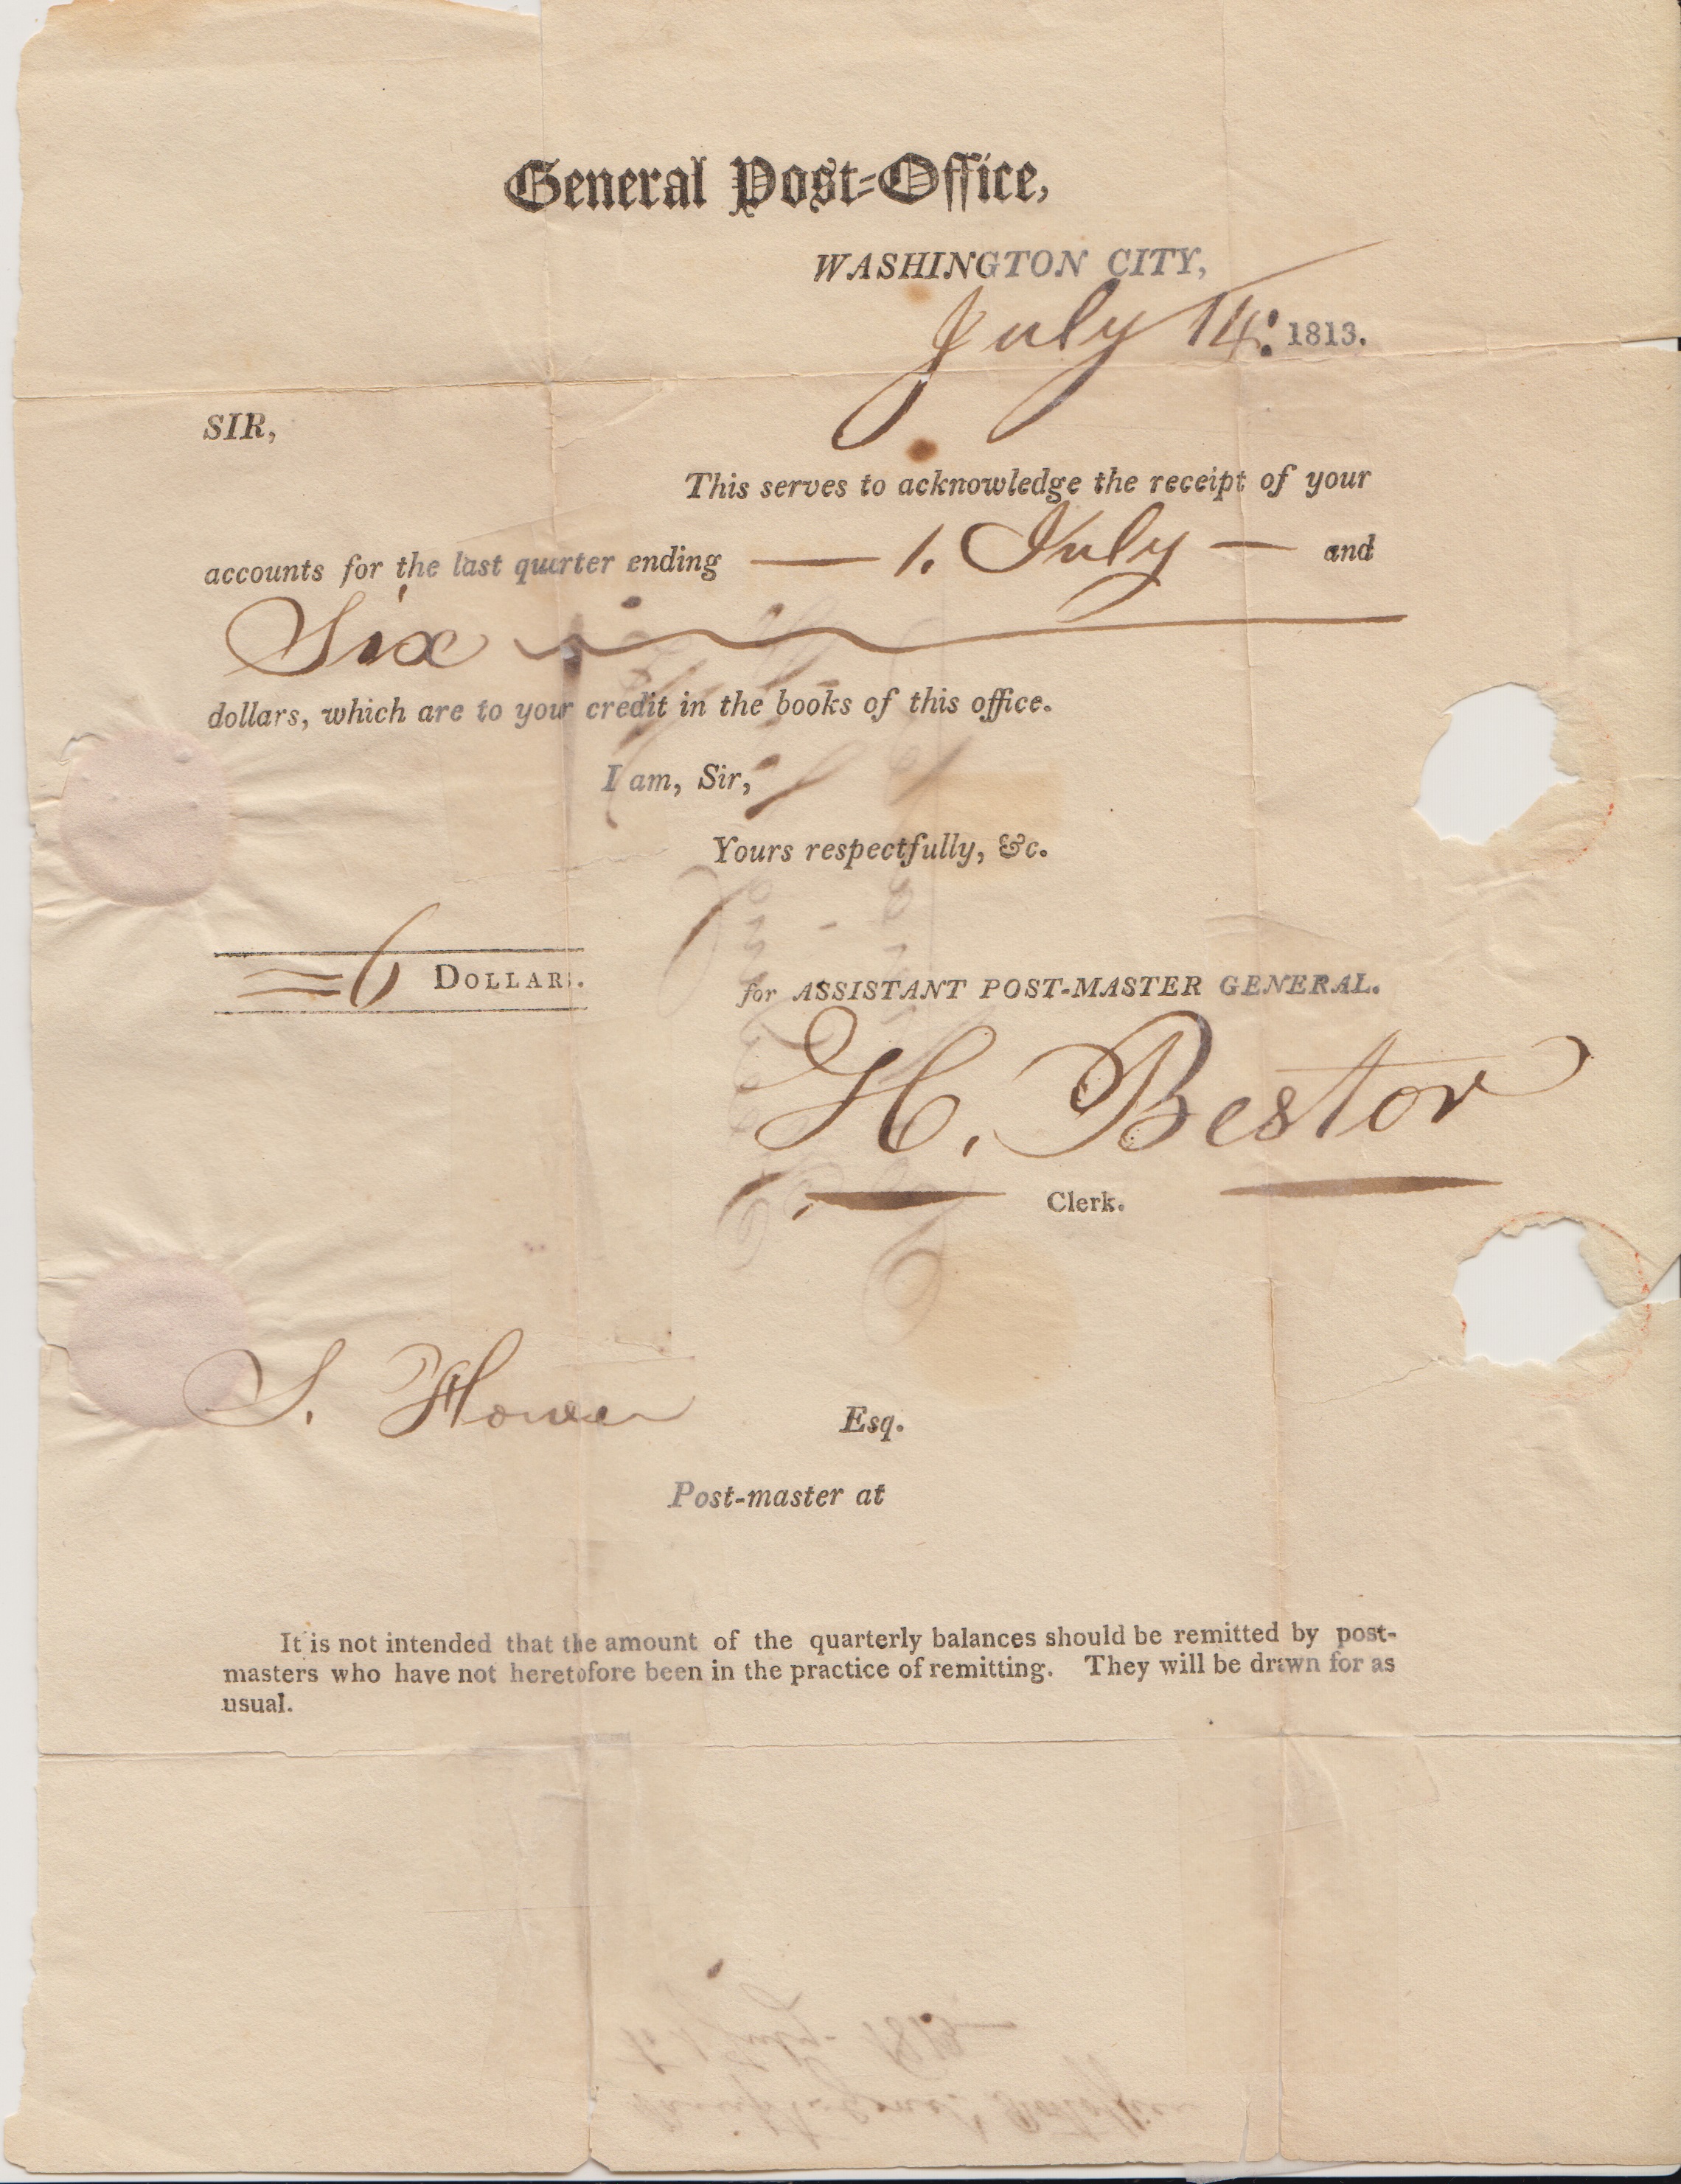 General Post-Office,
WASHINGTON CITY,
July 14: 1813.
SIR,
This serves to acknowledge the receipt of your
accounts for the last quarter ending — 1. July — and
Six
dollars, which are to your credit in the books of this office.
I am, Sir,
Yours respectfully, &c.
6 DOLLARS.
for ASSISTANT POST-MASTER GENERAL.
H. Bestor
Clerk.
S. Esq.
Post-master at
It is not intended that the amount of the quarterly balances should be remitted by post-
masters who have not heretofore been in the practice of remitting. They will be drawn for as
usual.